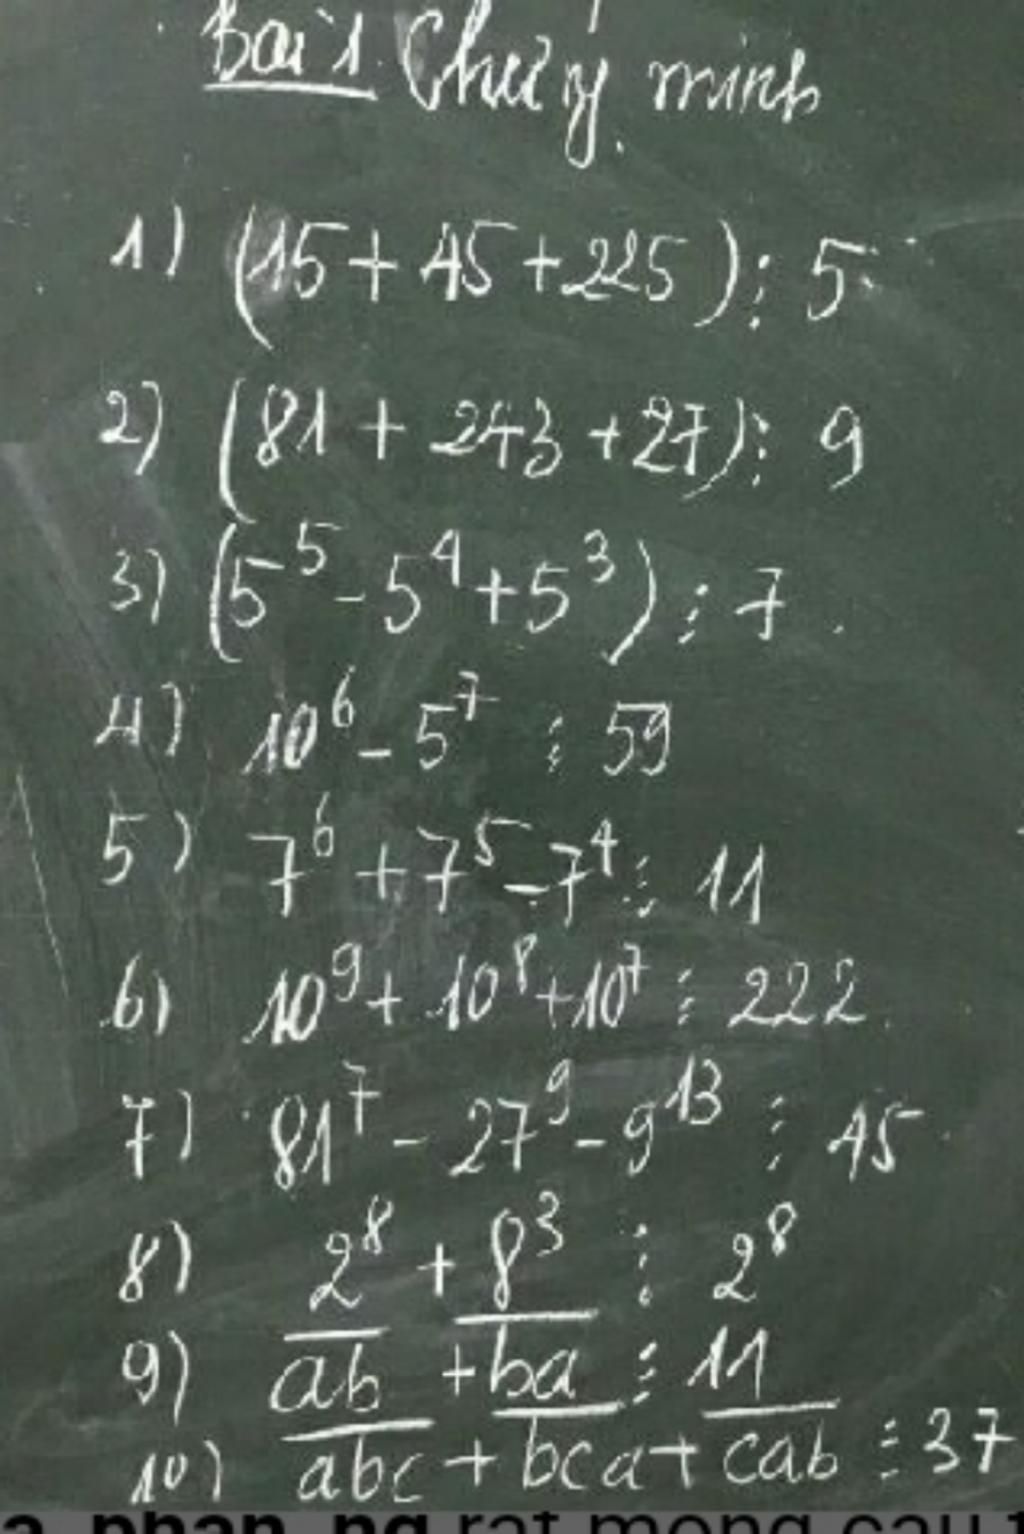 Bài 1. Chứng minh
1) (15 + 45 + 225) ⋮ 5
2) (81 + 243 + 27) ⋮ 9
3) (5⁵ - 5⁴ + 5³) ⋮ 7
4) 10⁶ - 5⁷ ⋮ 59
5) 7⁶ + 7⁵ - 7⁴ ⋮ 11
6) 10⁹ + 10⁸ + 10⁷ ⋮ 222
7) 81⁷ - 27⁹ - 9¹³ ⋮ 45
8) 2⁸ + 8³ ⋮ 2⁸
9) a̅b̅ + b̅a̅ ⋮ 11
10) a̅b̅c̅ + b̅c̅a̅ + c̅a̅b̅ ⋮ 37